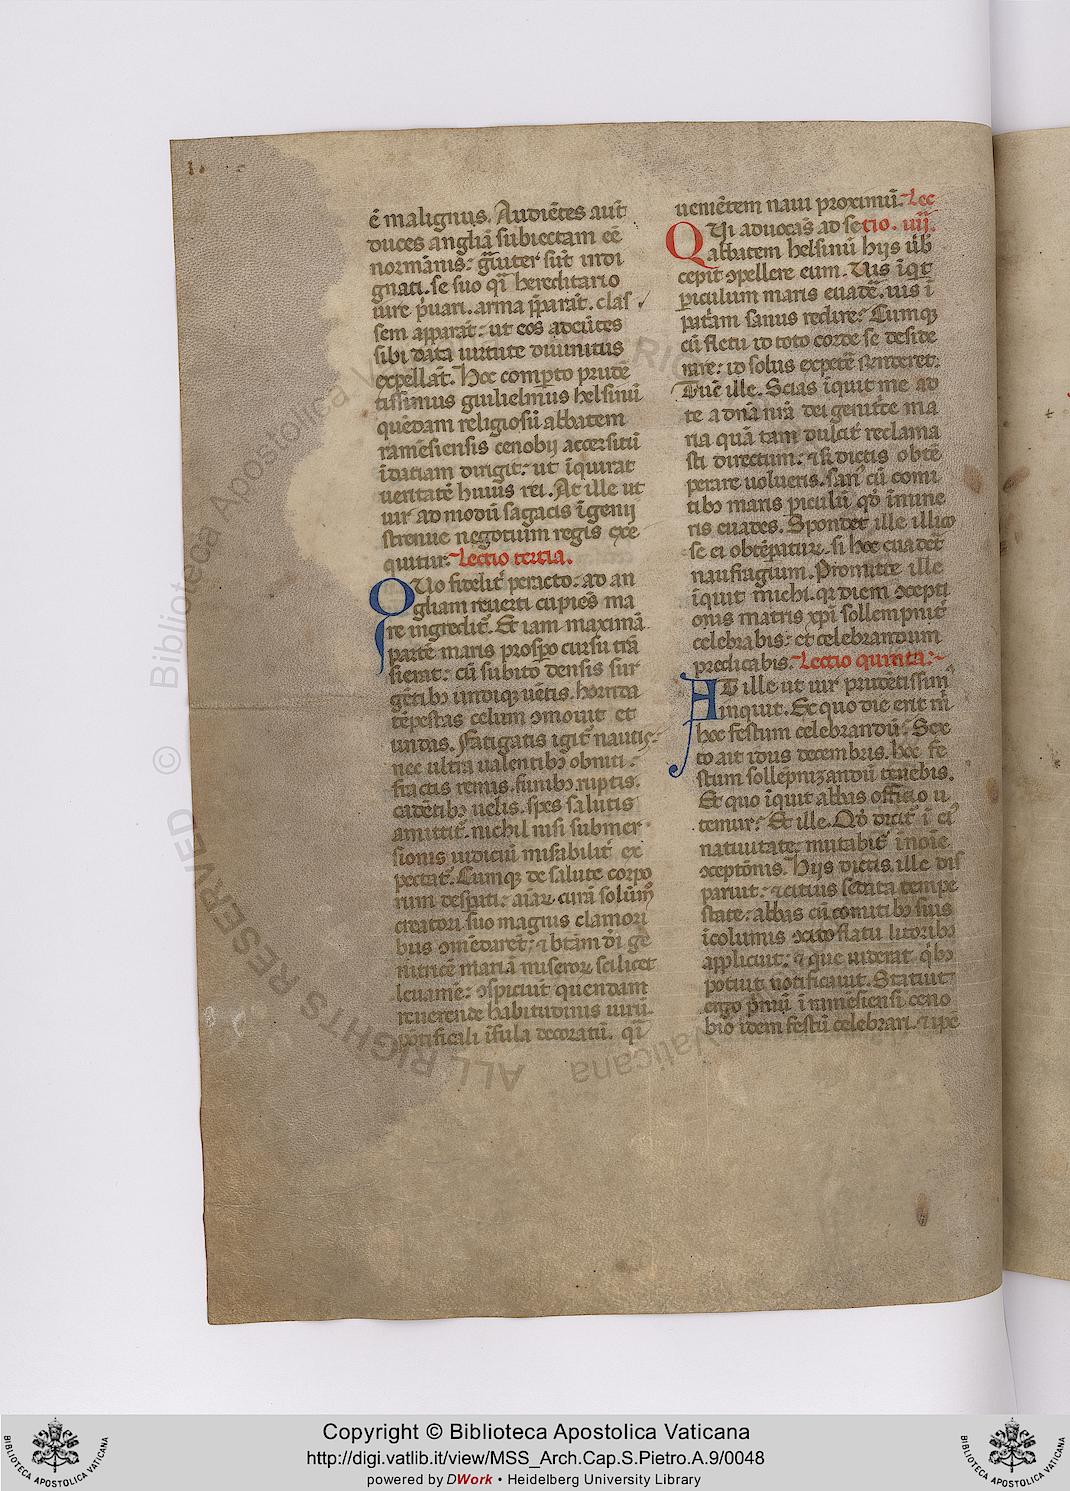 ē malignus. Audiētes aūt
duces angliā subiectam eē
normānis: ḡuiter sūt indi
gnati. se suo q̄i hereditario
iure p̄uari. arma p̄parāt. clas
sem apparāt: ut eos adeūtes
sibi data uirtute diuinitus
expellāt. Hoc comp̄to prudē
tissimus guilielmus helsinū
quēdam religiosū abbatem
ramēsiensis cenobij accersitū
ī datiam dirigit: ut īquirat
ueritatē huius rei. At ille ut
uir ad modū sagacis īgenij
strenue negotium regis exe
quitur. Lectio tertia.
Quo fidelit̄ peracto: ad an
gliam reuerti cupiēs ma
re ingredit̄. Et iam maximā
partē maris prosp̄o cursu trā
sierat: cū subito densis sur
gētibꝫ undiqꝫ uētis. horrida
tēpestas celum ↄmouit et
undas. Fatigatis igit̄ nautis
nec ultra ualentibꝫ obniti:
fractis remis. funibꝫ ruptis.
cadētibꝫ uelis. spes salutis
amittit̄. nichil nisi submer
sionis iudiciū mis̄abilit̄ ex
pectat̄. Cumqꝫ de salute corpo
rum desp̄ati: aīaꝝ curā solūm̄
creatori suo magnis clamori
bus ↄmēdaret: ⁊ btām dī ge
nitricē mariā miseroꝝ scilicet
leuamē: ↄspiciūt quendam
reuerende habitudinis uirū
pōtificali īfula decoratū. q̄i
uenietem naui proximū. Lec
Qui aduocās ad se tio. iiij.
abbatem helsinū hijs ūb̄
cepit ↄpellere eum. Uis īqt̄
piculum maris euadē. uis ī
patām sanus redire? Cumqꝫ
cū fletu id toto corde se deside
rare: id solus expetē r̄nderet:
Tūc ille. Scias īquit me ad
te a dn̄a nr̄a dei genitͥce ma
ria quā tam dulcit̄ reclama
sti directum: ⁊ si dictis obtē
perare uolueris. san̄ cū comi
tibꝫ maris piculū qd̄ īmine
ris euades. Spondet ille illico
se ei obtēpaturꝝ. si hoc euadet
naufragium. Promitte ille
īquit michi. qꝫ diem ↄcepti
onis matris xp̄i sollempnit̄
celebrabis: et celebrandum
predicabis. Lectio quinta.
At ille ut uir prudētissim̄
inquit. Et quo die erit m̄
hoc festum celebrandū? Sex
to ait idus decembris. hoc fe
stum sollepnizandū tenebis.
Et quo īquit abbas officio u
temur? Et ille. Qd̄ dicit̄ ī eiꝰ
natiuitate: mutabit̄ ī noīe
ↄceptōnis. Hijs dictis ille dis
paruit: ⁊ citius sedata tempe
state: abbas cū comitibꝫ suis
īcolumis ↄcito flatu litoribꝫ
applicuit: ⁊ que uiderat qͥbꝫ
potuit notificauit. Statuit
ergo p̄mū ī ramēsiēsi ceno
bio idem festū celebrari. ⁊ ipē
Copyright © Biblioteca Apostolica Vaticana
http://digi.vatlib.it/view/MSS_Arch.Cap.S.Pietro.A.9/0048
powered by DWork • Heidelberg University Library
BIBLIOTECA APOSTOLICA VATICANA
BIBLIOTECA APOSTOLICA VATICANA
© Biblioteca Apostolica Vaticana
ALL RIGHTS RESERVED